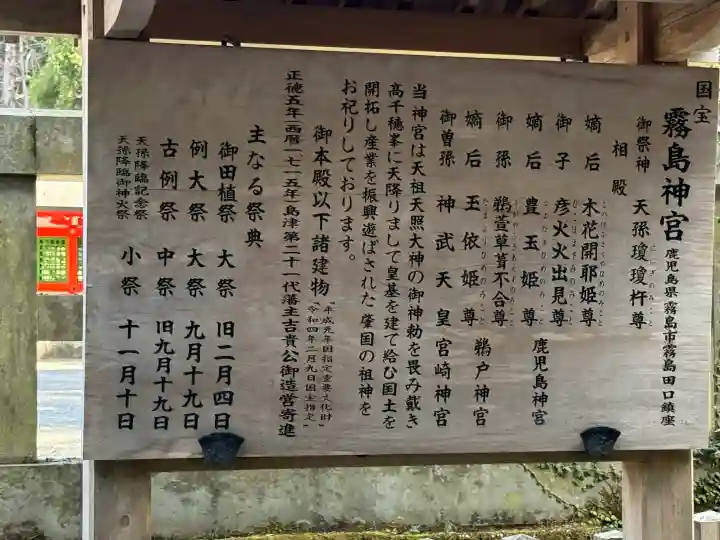 国宝
霧島神宮 鹿児島県霧島市霧島田口鎮座
御祭神 天孫瓊瓊杵尊
相殿
嫡后 木花開耶姫尊
御子 彦火火出見尊
嫡后 豊玉姫尊 鹿児島神宮
御孫 鵜萱草葺不合尊
嫡后 玉依姫尊 鵜戸神宮
御曽孫 神武天皇 宮崎神宮
当神宮は天祖天照大神の御神勅を畏み戴き
高千穂峯に天降りまして皇基を建て給ひ国土を
開拓し産業を振興遊ばされた肇国の祖神を
お祀りしております。
御本殿以下諸建物
平成元年国指定重要文化財
令和四年二月九日国宝指定
正徳五年(西暦一七一五年)島津第二十一代藩主吉貴公御造営寄進
主なる祭典
御田植祭 大祭 旧二月四日
例大祭 大祭 九月十九日
古例祭 中祭 旧九月十九日
天孫降臨記念祭
天孫降臨御神火祭 小祭 十一月十日